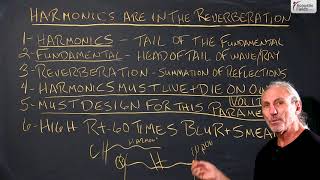 Acoustic Fields
HARMONICS ARE IN THE REVERBERATION
1- HARMONICS - TAIL OF THE FUNDAMENTAL
2- FUNDAMENTAL - HEAD OF TAIL OF WAVE/RAY
3- REVERBERATION - SUMMATION OF REFLECTIONS
4- HARMONICS MUST LIVE + DIE ON OWN
VOLU
5- MUST DESIGN FOR THIS PARAME
6- HIGH RT-60 TIMES BLUR + SMEA
HARMON